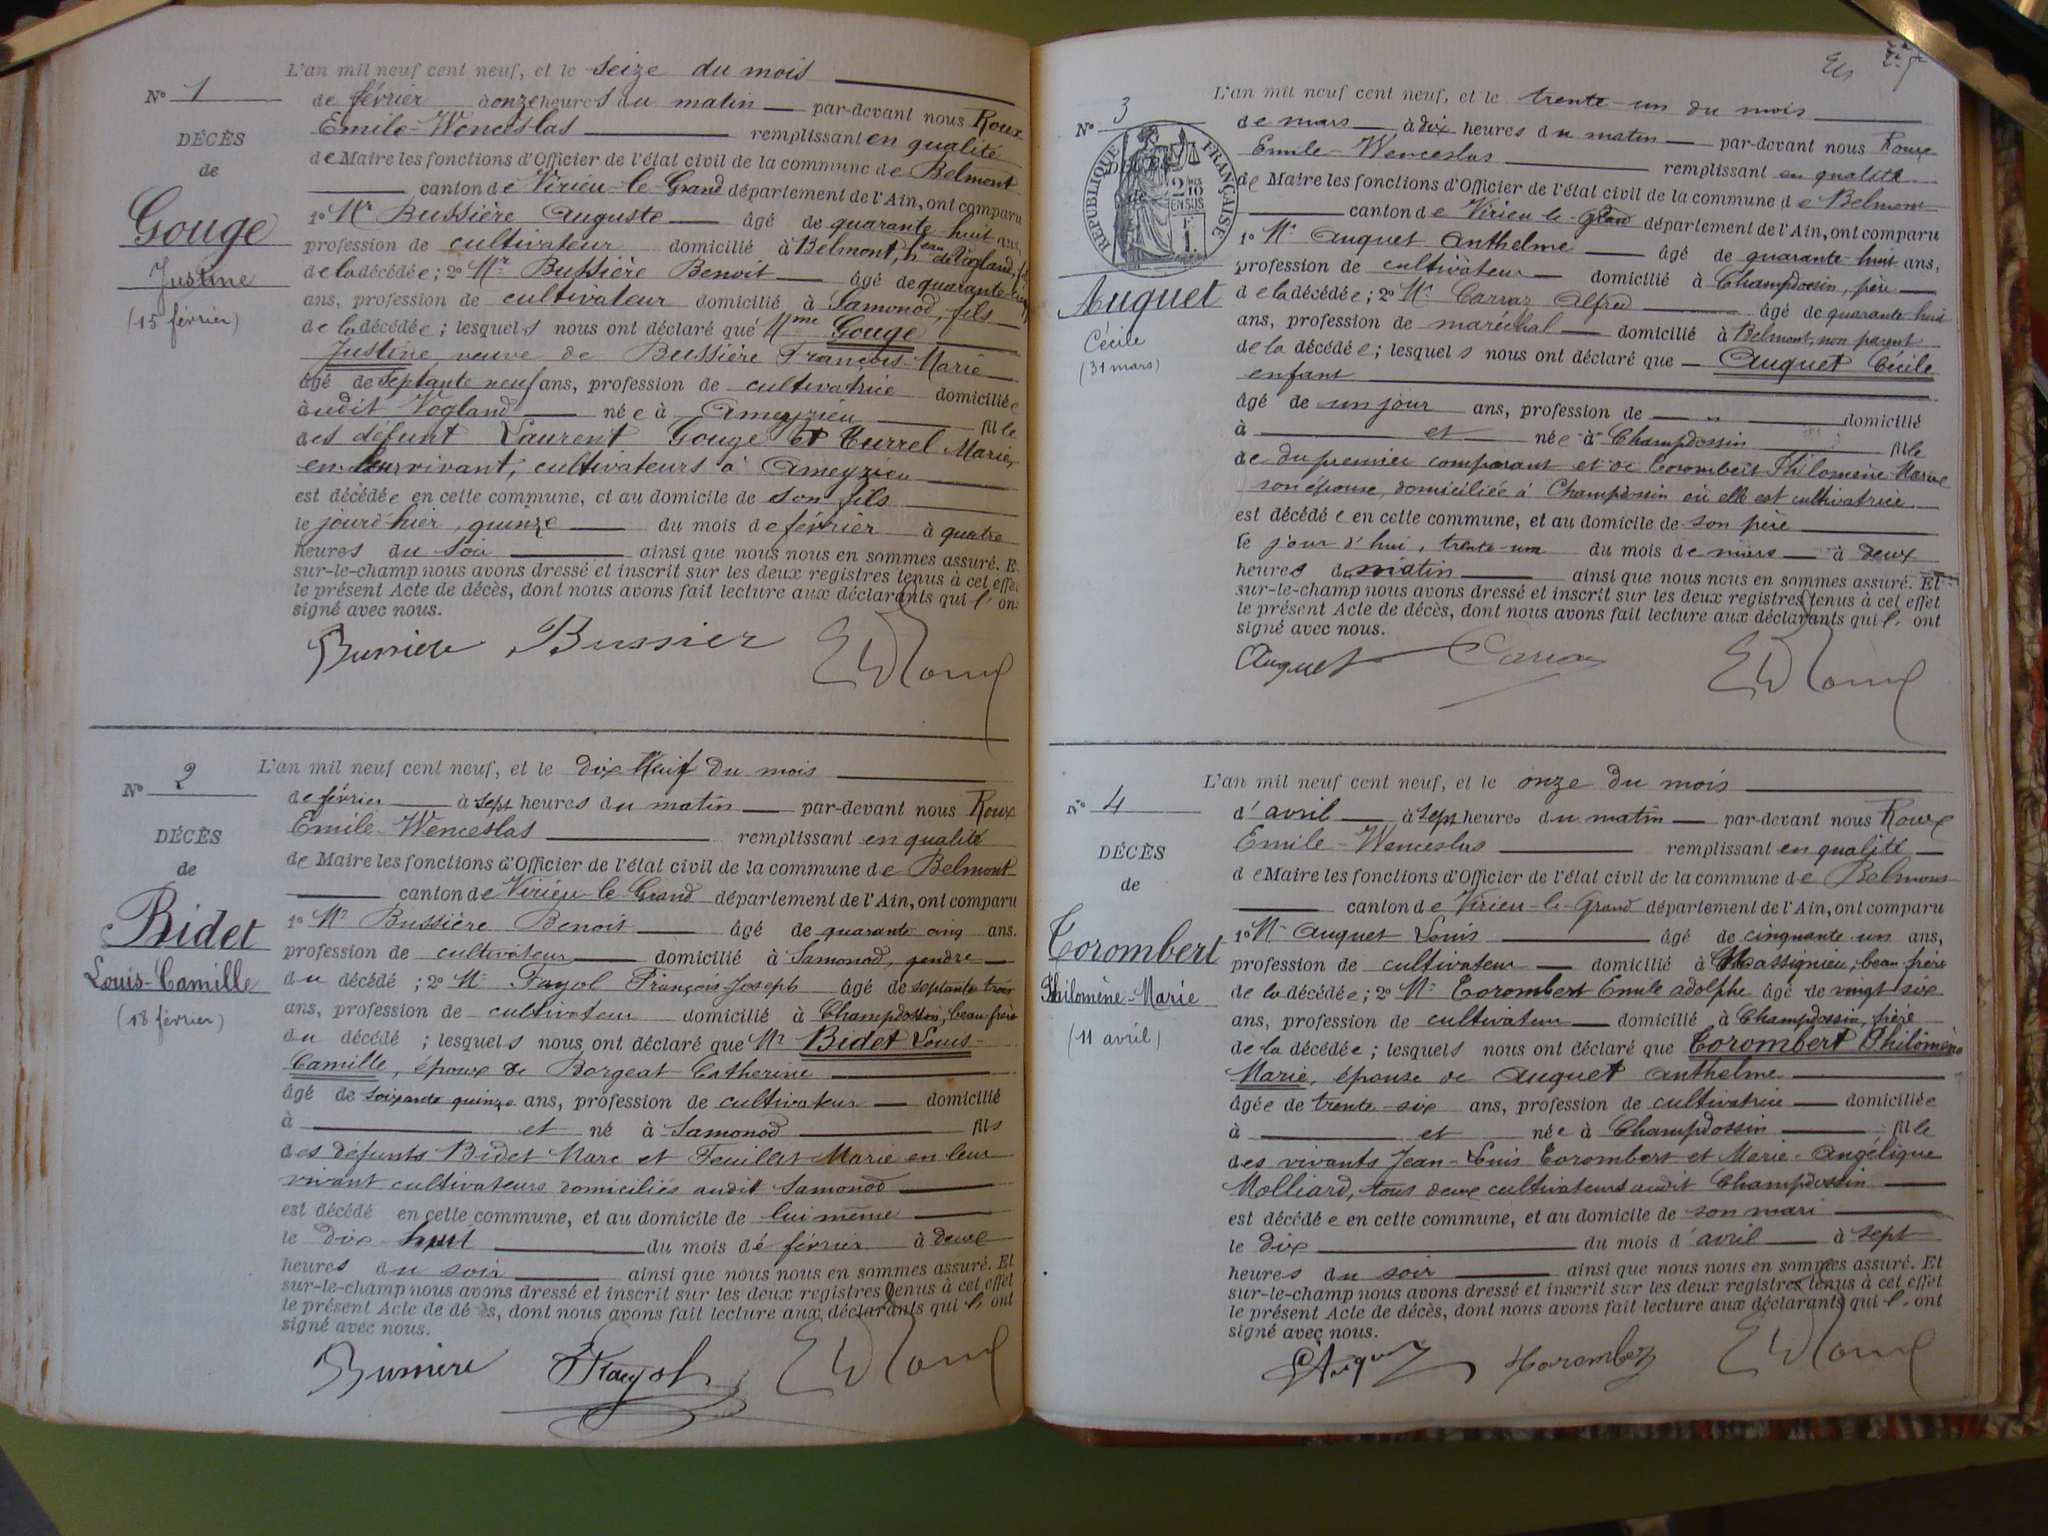 L'an mil neuf cent neuf, et le seize du mois
No 1
de février à onze heures du matin par-devant nous Roux
Emile-Wenceslas remplissant en qualité
DÉCÈS
de Maire les fonctions d'Officier de l'état civil de la commune de Belmont
de
canton de Virieu-le-Grand département de l'Ain, ont comparu
Gouge
1o Mr Bussière Auguste âgé de quarante-huit ans,
profession de cultivateur domicilié à Belmont, heau de Vogland,
Justine
de la décédée; 2o Mr Bussière Benoit âgé de quarante-cinq
(15 février)
ans, profession de cultivateur domicilié à Samonod, fils
de la décédée; lesquels nous ont déclaré que Mme Gouge
Justine, veuve de Bussière François-Marie
âgé de septante neuf ans, profession de cultivatrice domiciliée
audit Vogland née à Ameyzieu fille
des défunt Laurent Gouge et Turrel Marie,
en leur vivant, cultivateurs à Ameyzieu
est décédée en cette commune, et au domicile de son fils
le jourd'hier, quinze du mois de février à quatre
heures du soir ainsi que nous nous en sommes assuré. Et
sur-le-champ nous avons dressé et inscrit sur les deux registres tenus à cet effet
le présent Acte de décès, dont nous avons fait lecture aux déclarants qui l' ont
signé avec nous.
Bussière Bussier E W Roux
L'an mil neuf cent neuf, et le dix huit du mois
No 2
de février à sept heures du matin par-devant nous Roux
Emile-Wenceslas remplissant en qualité
DÉCÈS
de Maire les fonctions d'Officier de l'état civil de la commune de Belmont
de
canton de Virieu le Grand département de l'Ain, ont comparu
Bidet
1o Mr Bussière Benoit âgé de quarante cinq ans.
profession de cultivateur domicilié à Samonod, gendre
Louis-Camille
du décédé; 2o Mr Fayol François-Joseph âgé de septante trois
(18 février)
ans, profession de cultivateur domicilié à Champdossin, beau-frère
du décédé; lesquels nous ont déclaré que Mr Bidet Louis-
Camille, époux de Borgeat Catherine
âgé de soixante quinze ans, profession de cultivateur domicilié
à et né à Samonod fils
des défunts Bidet Marc et Feuillet Marie en leur
vivant cultivateurs domiciliés audit Samonod
est décédé en cette commune, et au domicile de lui même
le dix-huit du mois de février à deux
heures du soir ainsi que nous nous en sommes assuré. Et
sur-le-champ nous avons dressé et inscrit sur les deux registres tenus à cet effet
le présent Acte de décès, dont nous avons fait lecture aux déclarants qui l' ont
signé avec nous.
Bussière Fayol E W Roux
L'an mil neuf cent neuf, et le trente-un du mois
No 3
de mars à dix heures du matin par-devant nous Roux
Emile-Wenceslas remplissant en qualité
RÉPUBLIQUE FRANÇAISE
2/10 EN SUS
1F
de Maire les fonctions d'Officier de l'état civil de la commune de Belmont
canton de Virieu-le-Grand département de l'Ain, ont comparu
1o Mr Auguet Anthelme âgé de quarante-huit ans,
profession de cultivateur domicilié à Champdossin, père
Auguet
de la décédée; 2o Mr Carraz Alfred âgé de quarante huit
Cécile
ans, profession de maréchal domicilié à Belmont, non parent
(31 mars)
de la décédée; lesquels nous ont déclaré que Auguet Cécile
enfant
âgé de un jour ans, profession de " domicilié
à et née à Champdossin fille
de du premier comparant et de Corombert Philomène-Marie
son épouse, domiciliée à Champdossin où elle est cultivatrice
est décédée en cette commune, et au domicile de son père
le jour d'hui, trente-un du mois de mars à deux
heures du matin ainsi que nous nous en sommes assuré. Et
sur-le-champ nous avons dressé et inscrit sur les deux registres tenus à cet effet
le présent Acte de décès, dont nous avons fait lecture aux déclarants qui l' ont
signé avec nous.
Auguet Carraz E W Roux
L'an mil neuf cent neuf, et le onze du mois
No 4
d'avril à sept heures du matin par-devant nous Roux
Emile-Wenceslas remplissant en qualité
DÉCÈS
de Maire les fonctions d'Officier de l'état civil de la commune de Belmont
de
canton de Virieu-le-Grand département de l'Ain, ont comparu
Corombert
1o Mr Auguet Louis âgé de cinquante-un ans,
profession de cultivateur domicilié à Massignieu, beau-frère
Philomène-Marie
de la décédée; 2o Mr Corombert Emile Adolphe âgé de vingt six
(11 avril)
ans, profession de cultivateur domicilié à Champdossin, frère
de la décédée; lesquels nous ont déclaré que Corombert Philomène
Marie, épouse de Auguet Anthelme
âgée de trente-six ans, profession de cultivatrice domiciliée
à et née à Champdossin fille
des vivants Jean-Louis Corombert et Marie-Angélique
Molliard, tous deux cultivateurs audit Champdossin
est décédée en cette commune, et au domicile de son mari
le dix du mois d'avril à sept
heures du soir ainsi que nous nous en sommes assuré. Et
sur-le-champ nous avons dressé et inscrit sur les deux registres tenus à cet effet
le présent Acte de décès, dont nous avons fait lecture aux déclarants qui l' ont
signé avec nous.
Auguet Corombert E W Roux